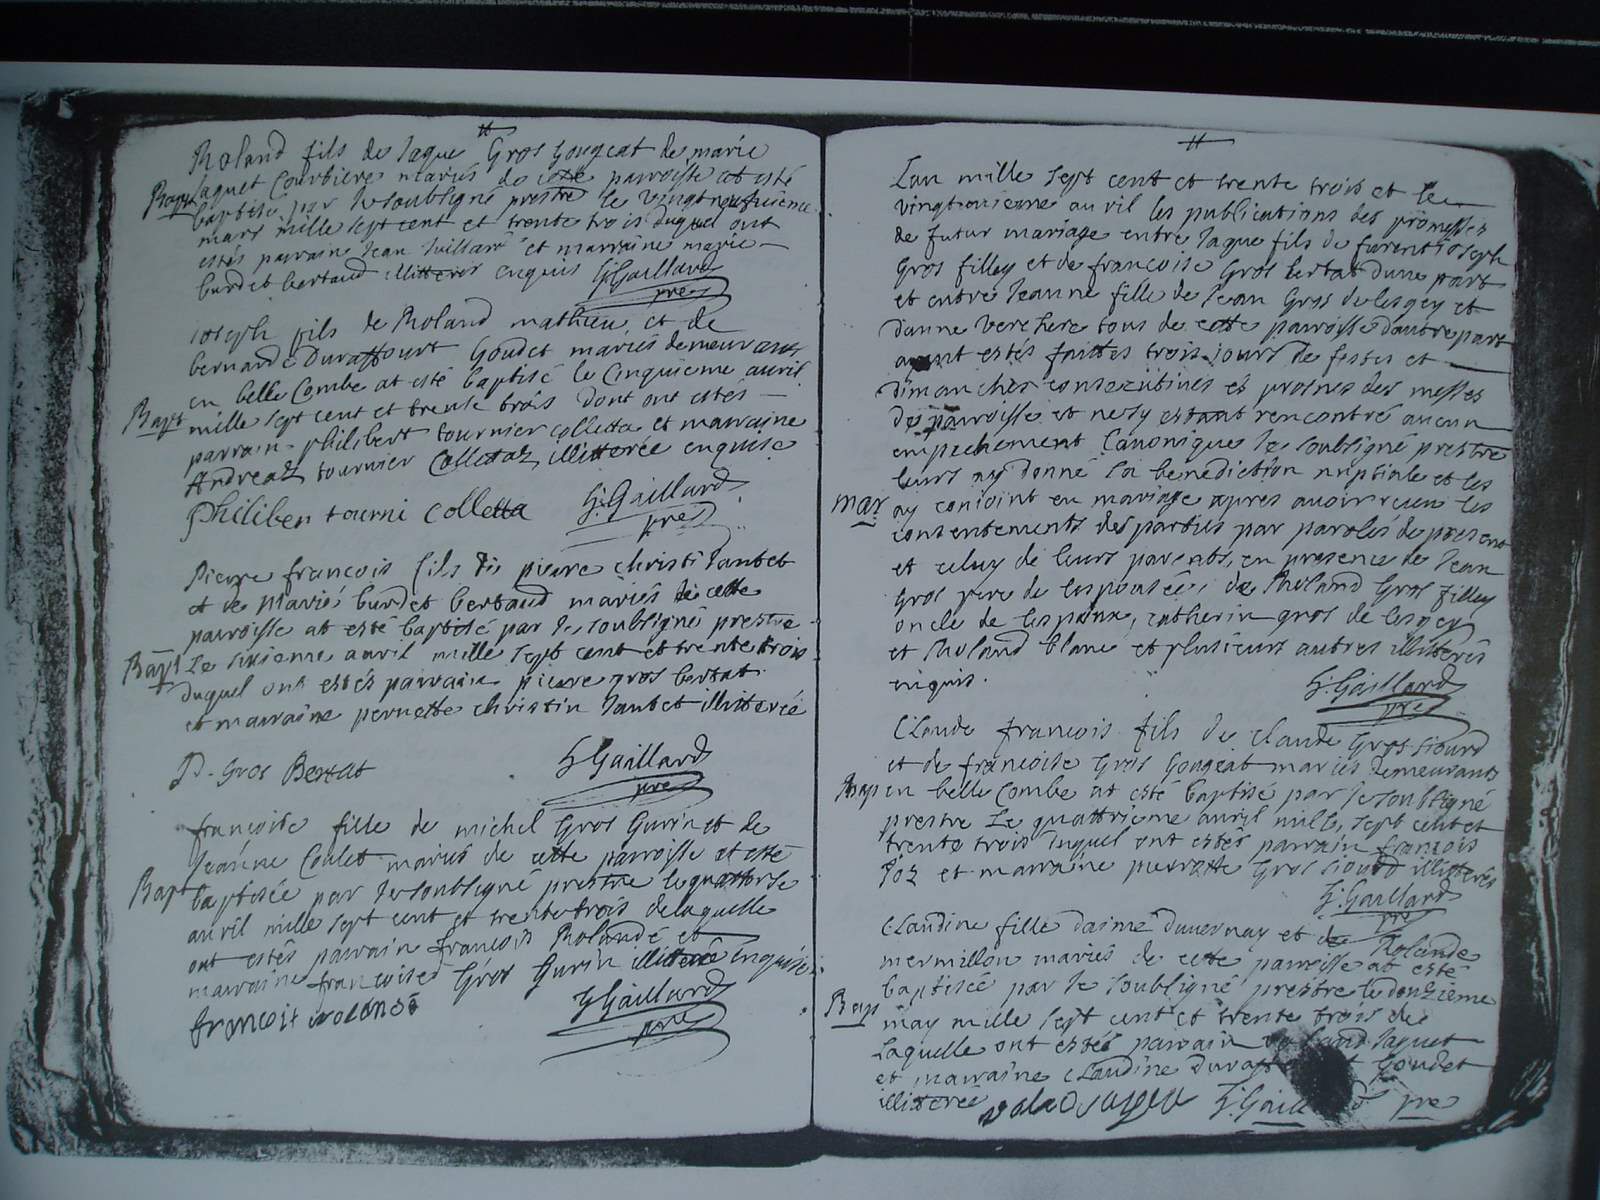 Roland fils de Jaque Gros Gougeat de marie
Bapt Jaquet Courbiere mariés de cette parroisse at esté
baptisé par Je soubsigné prestre le vingtneufuieme
mars mille sept cent et trente trois duquel ont
estés parrain Jean Vuillard et marraine marie
burdet bertaud illitteres enquis G: Gaillard
pre
Joseph fils de Roland mathieu et de
bernarde Duraffourt Goudet mariés demeurants
en belle Combe at esté baptisé le Cinquieme auril
Bapt mille sept cent et trente trois dont ont estés
parrain philibert tournier colletta et marraine
Andreaz tournier Collettaz illitterée enquise
philiber tourni colletta G: Gaillard
pre
Pierre francois fils de pierre christi tantet
et de Marie burdet bertaud mariés de cette
parroisse at esté baptisé par Je soubsigné prestre
Bapt Le sixieme auril mille sept cent et trente trois
duquel ont estés parrain pierre gros bertat
et marraine pernette christin tantet illiterée
P. Gros Bertat G Gaillard
pre
francoise fille de michel Gros Gurin et de
Jeanne Coulet mariés de cette parroisse at esté
Bapt baptisée par Je soubsigné prestre le quattorse
auril mille sept cent et trente trois de laquelle
ont estés parrain francois Rolandé et
marraine francoise Gros Gurin illiterée enquise
francois rolandé G Gaillard
pre
Lan mille sept cent et trente trois et le
vingtroisieme auril les publications des promesses
de futur mariage entre Jaque fils de furent Joseph
Gros filley et de francoise Gros bertat dune part
et entre Jeanne fille de Jean Gros de lesgey et
danne Verchere tous de cette parroisse dautre part
ayant estés faittes trois jours de festes et
dimanches consecutiues es prosnes des messes
de parroisse et nesy estant rencontré aucun
empechement Canonique Je soubsigné prestre
leurs ay donné la benediction nuptiale et les
mar ay conioint en mariage apres auoir receu les
consentements des parties par paroles de present
et celuy de leurs parents, en presence de Jean
Gros pere de lespousée, de Roland Gros filley
oncle de lespoux, catherin gros de lesgey
et Roland blanc et plusieurs autres illitterés
enquis.
G: Gaillard
pre
Claude francois fils de claude Gros siourd
et de francoise Gros Gougeat mariés demeurants
Bap en belle Combe at esté baptisé par Je soubsigné
prestre Le quattrieme auril mille, sept cent et
trente trois duquel ont estés parrain francois
poz et marraine pierrotte Gros siourd illitterés
G: Gaillard
pre
Claudine fille daimé duuernay et de Rolande
mermillon mariés de cette parroisse at esté
baptisée par Je Soubsigné prestre le douzieme
Bap may mille sept cent et trente trois de
Laquelle ont estés parrain Jaquet
et marraine claudine Goudet
illitterée G: Gaill pre